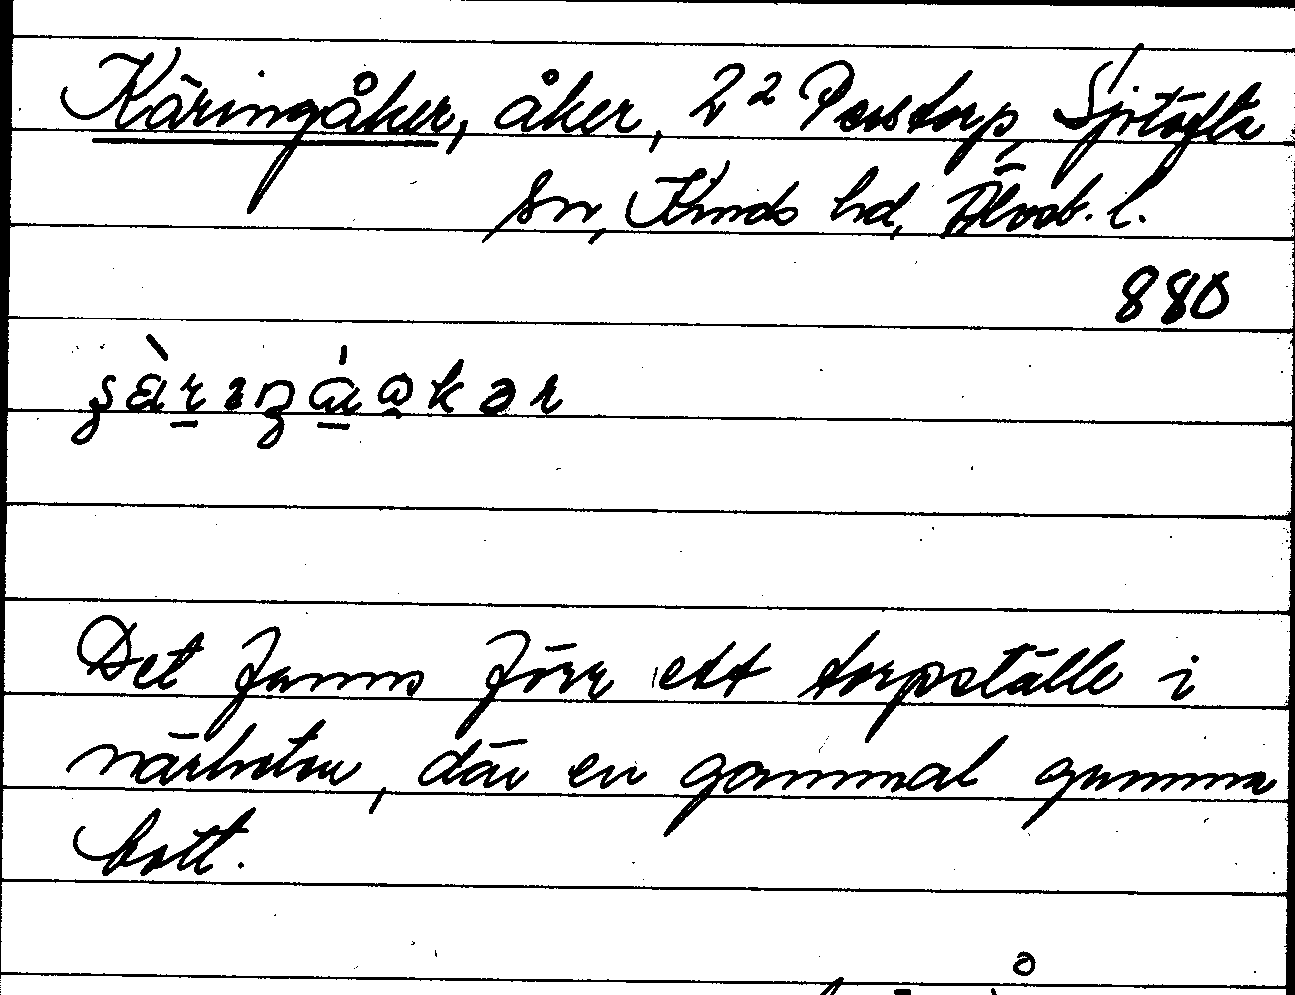 Käringåker, åker, 2² Perstorp, Sjötofta
sn, Kinds hd, Älvsb. l.
880
Det fanns förr ett torpställe i
närheten, där en gammal gumma
bott.